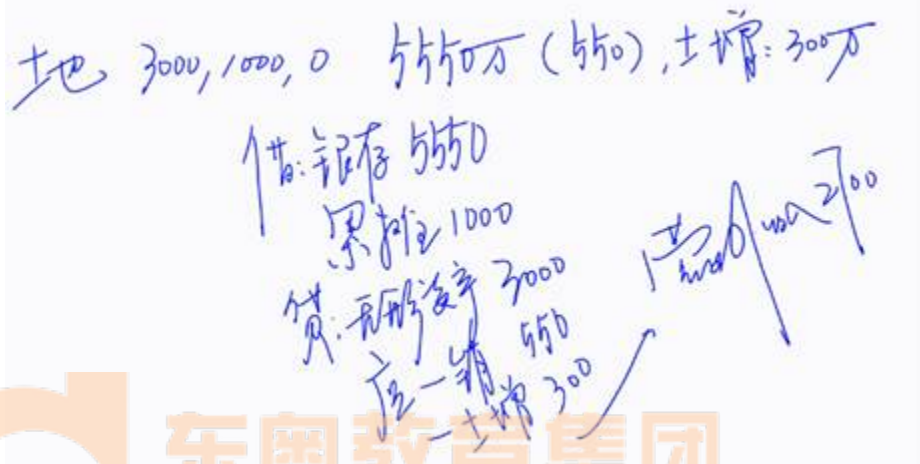 土地 3000,1000,0 5550万(550),土增:300万
借:银存 5550
累摊 1000
贷:无形资产 3000
应一销 550
一土增 300
2700
东奥教育集团